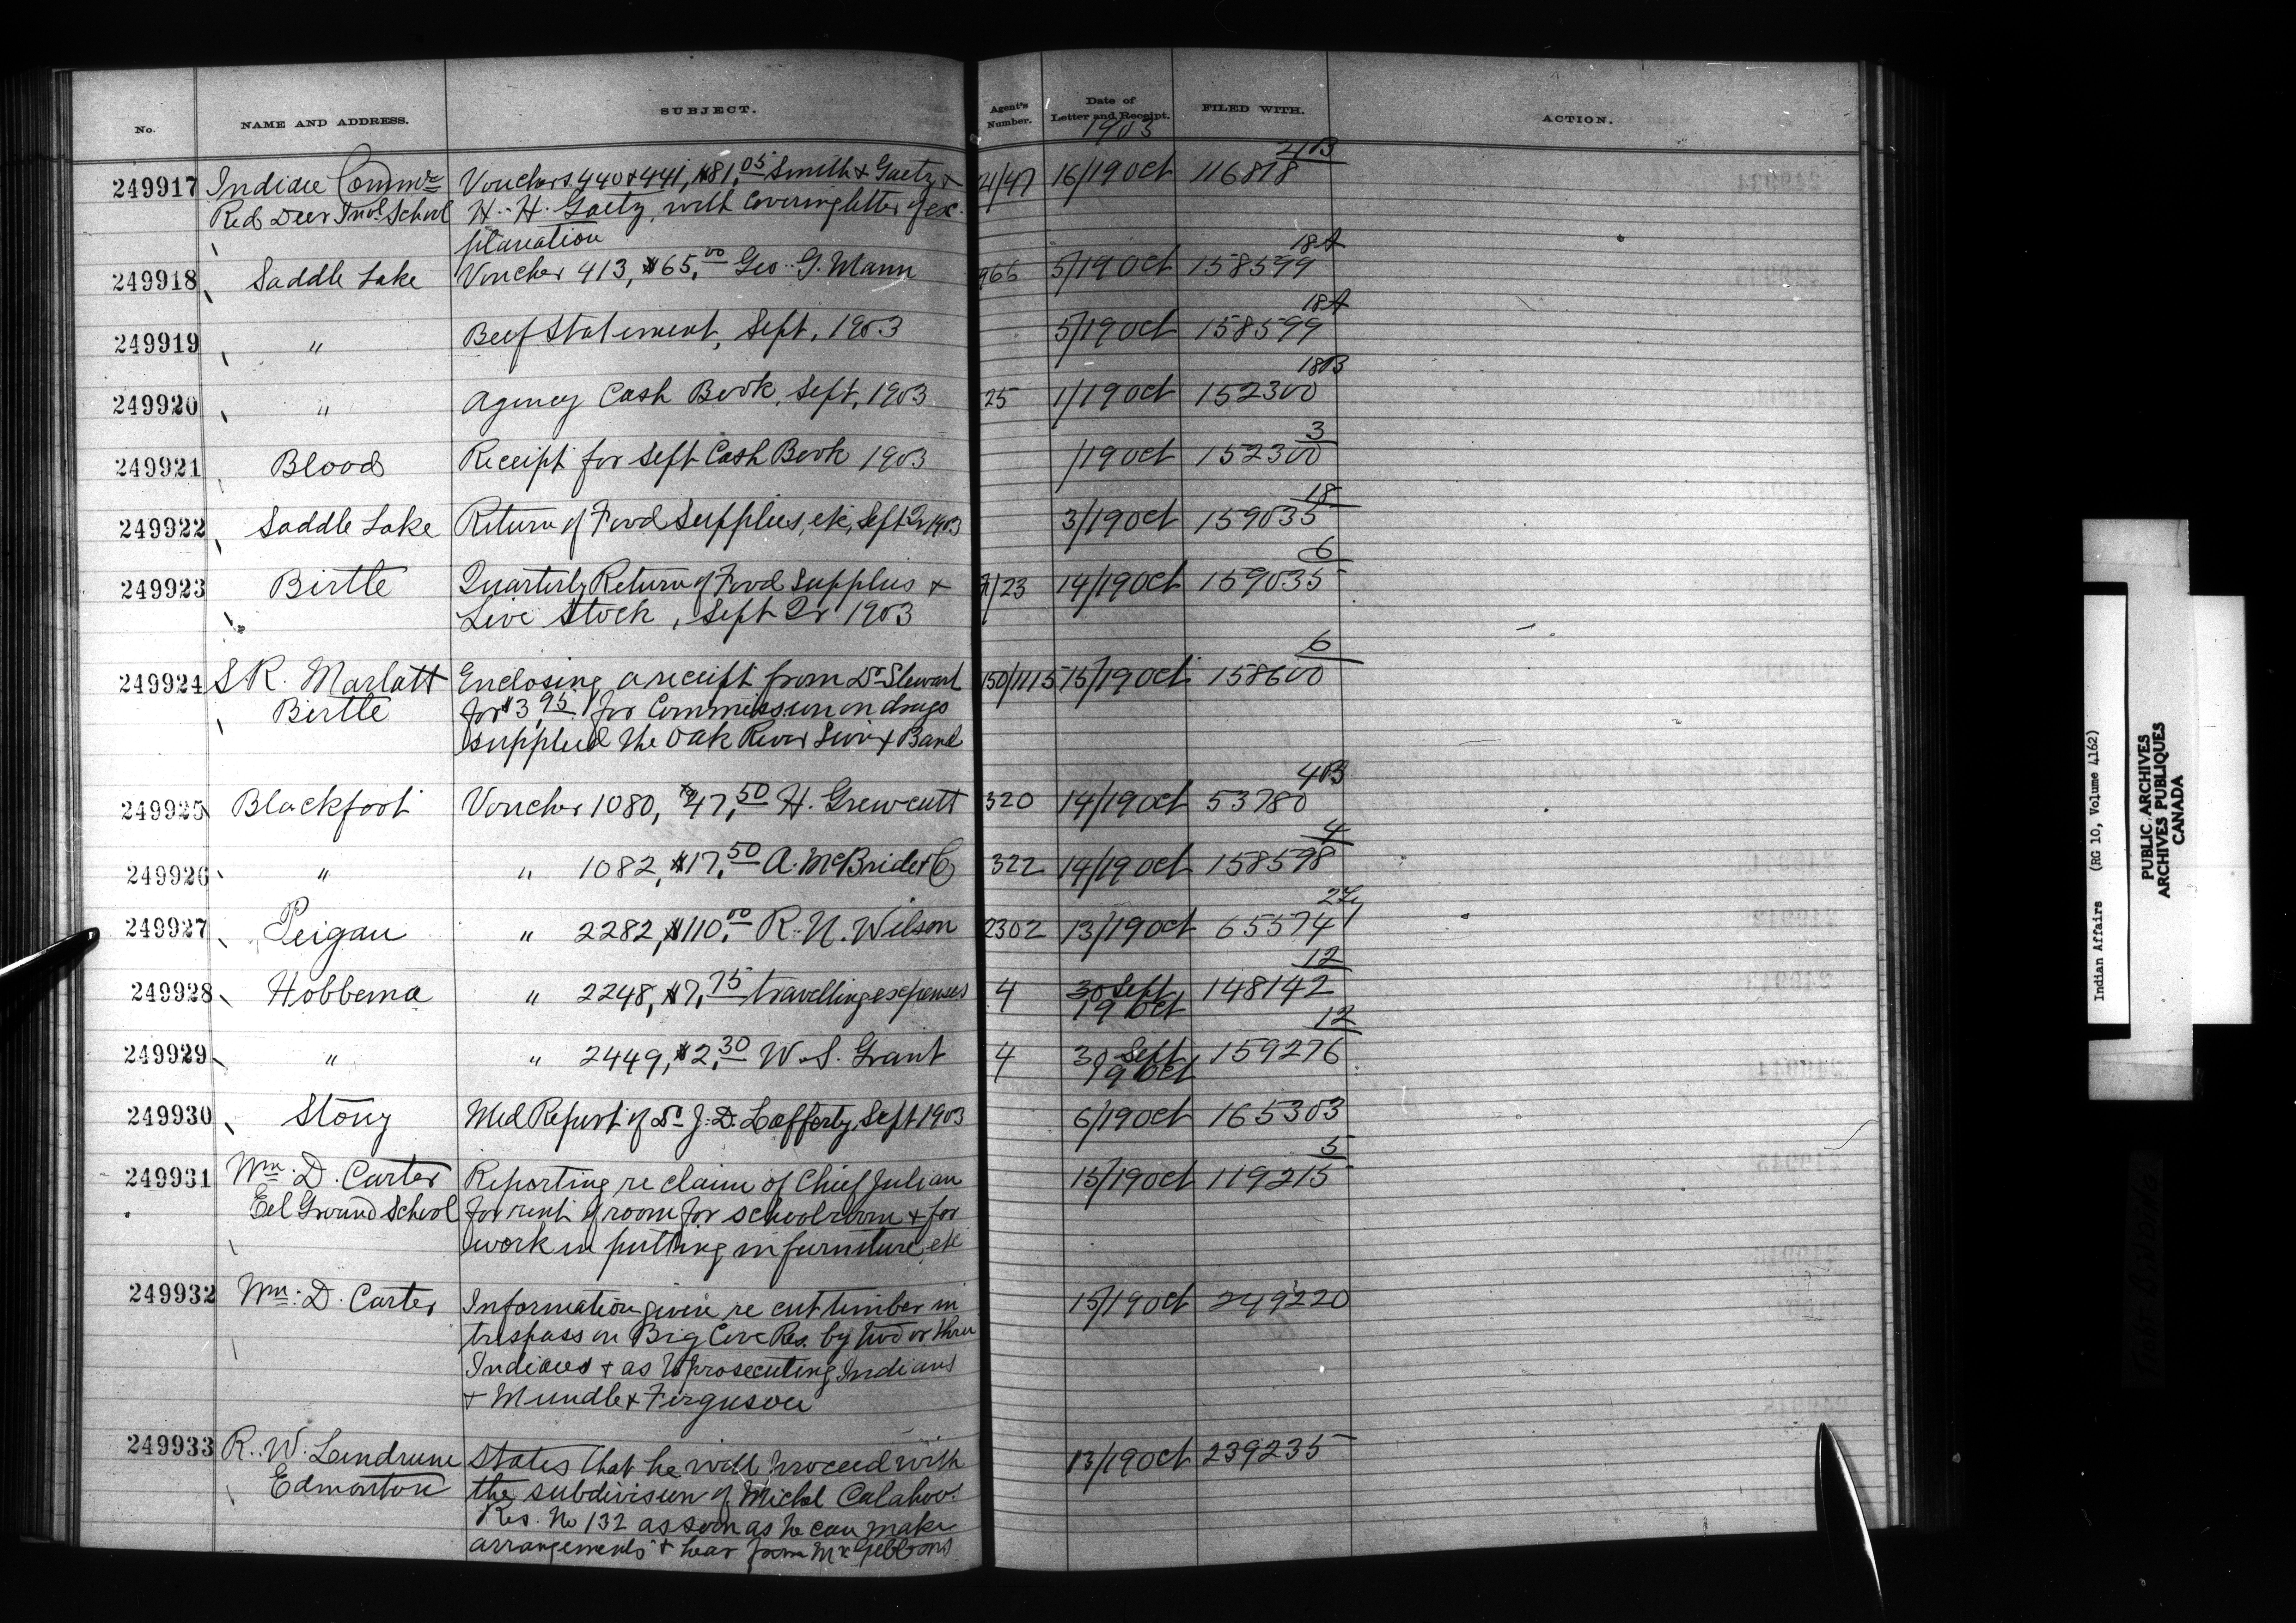 No. NAME AND ADDRESS. SUBJECT. Agent's Number. Date of Letter and Receipt. FILED WITH. ACTION.
1903
249917 Indian Commr Vouchers 440 & 441, $81.05 Smith & Gaetz & 21/47 16/19 Oct 116818 4B
Red Deer Indl School H. H. Gaetz, with covering letter of ex-
planation
249918 Saddle Lake Voucher 413, $65.00 Geo. G. Mann 966 5/19 Oct 158599 18A
249919 " Beef Statement, Sept. 1903 5/19 Oct 158599 18A
249920 " Agency Cash Book, Sept. 1903 25 1/19 Oct 152300 18B
249921 Blood Receipt for Sept Cash Book 1903 /19 Oct 152300 3
249922 Saddle Lake Return of Food Supplies, etc, Sept Qr 1903 3/19 Oct 159035 18
249923 Birtle Quarterly Return of Food Supplies & /23 14/19 Oct 159035 6
Live Stock, Sept Qr 1903
249924 S R. Marlatt Enclosing a receipt from Dr Stewart 150/1115 15/19 Oct 158600 6
Birtle for $3.95 for Commission on drugs
supplied the Oak River Sioux Band
249925 Blackfoot Voucher 1080, $47.50 H. Grewcutt 320 14/19 Oct 53780 4B
249926 " " 1082, $17.50 A. McBride & Co 322 14/19 Oct 158598 4
249927 Peigan " 2282, $110.00 R. N. Wilson 2302 13/19 Oct 65574
249928 Hobbema " 2248, $7.75 travelling expenses 4 30 Sept 148142 12
19 Oct
249929 " " 2449, $2.30 W. S. Grant 4 30 Sept 159276 12
19 Oct
249930 Stony Med Report of Dr J. D. Lafferty, Sept 1903 6/19 Oct 165303
249931 Wm. D. Carter Reporting re claim of Chief Julian 15/19 Oct 119215 5
Eel Ground School for rent of room for schoolroom & for
work in putting in furniture, etc
249932 Wm. D. Carter Information given re cut timber in 15/19 Oct 249220
trespass on Big Cove Res. by two or three
Indians & as to prosecuting Indians
& Mundle & Ferguson
249933 R. W. Lendrum States that he will proceed with 13/19 Oct 239235
Edmonton the subdivision of Michel Calahoo
Res. No 132 as soon as he can make
arrangements & hear from Mr Gibbons
Indian Affairs (RG 10, Volume 4162)
PUBLIC ARCHIVES
ARCHIVES PUBLIQUES
CANADA